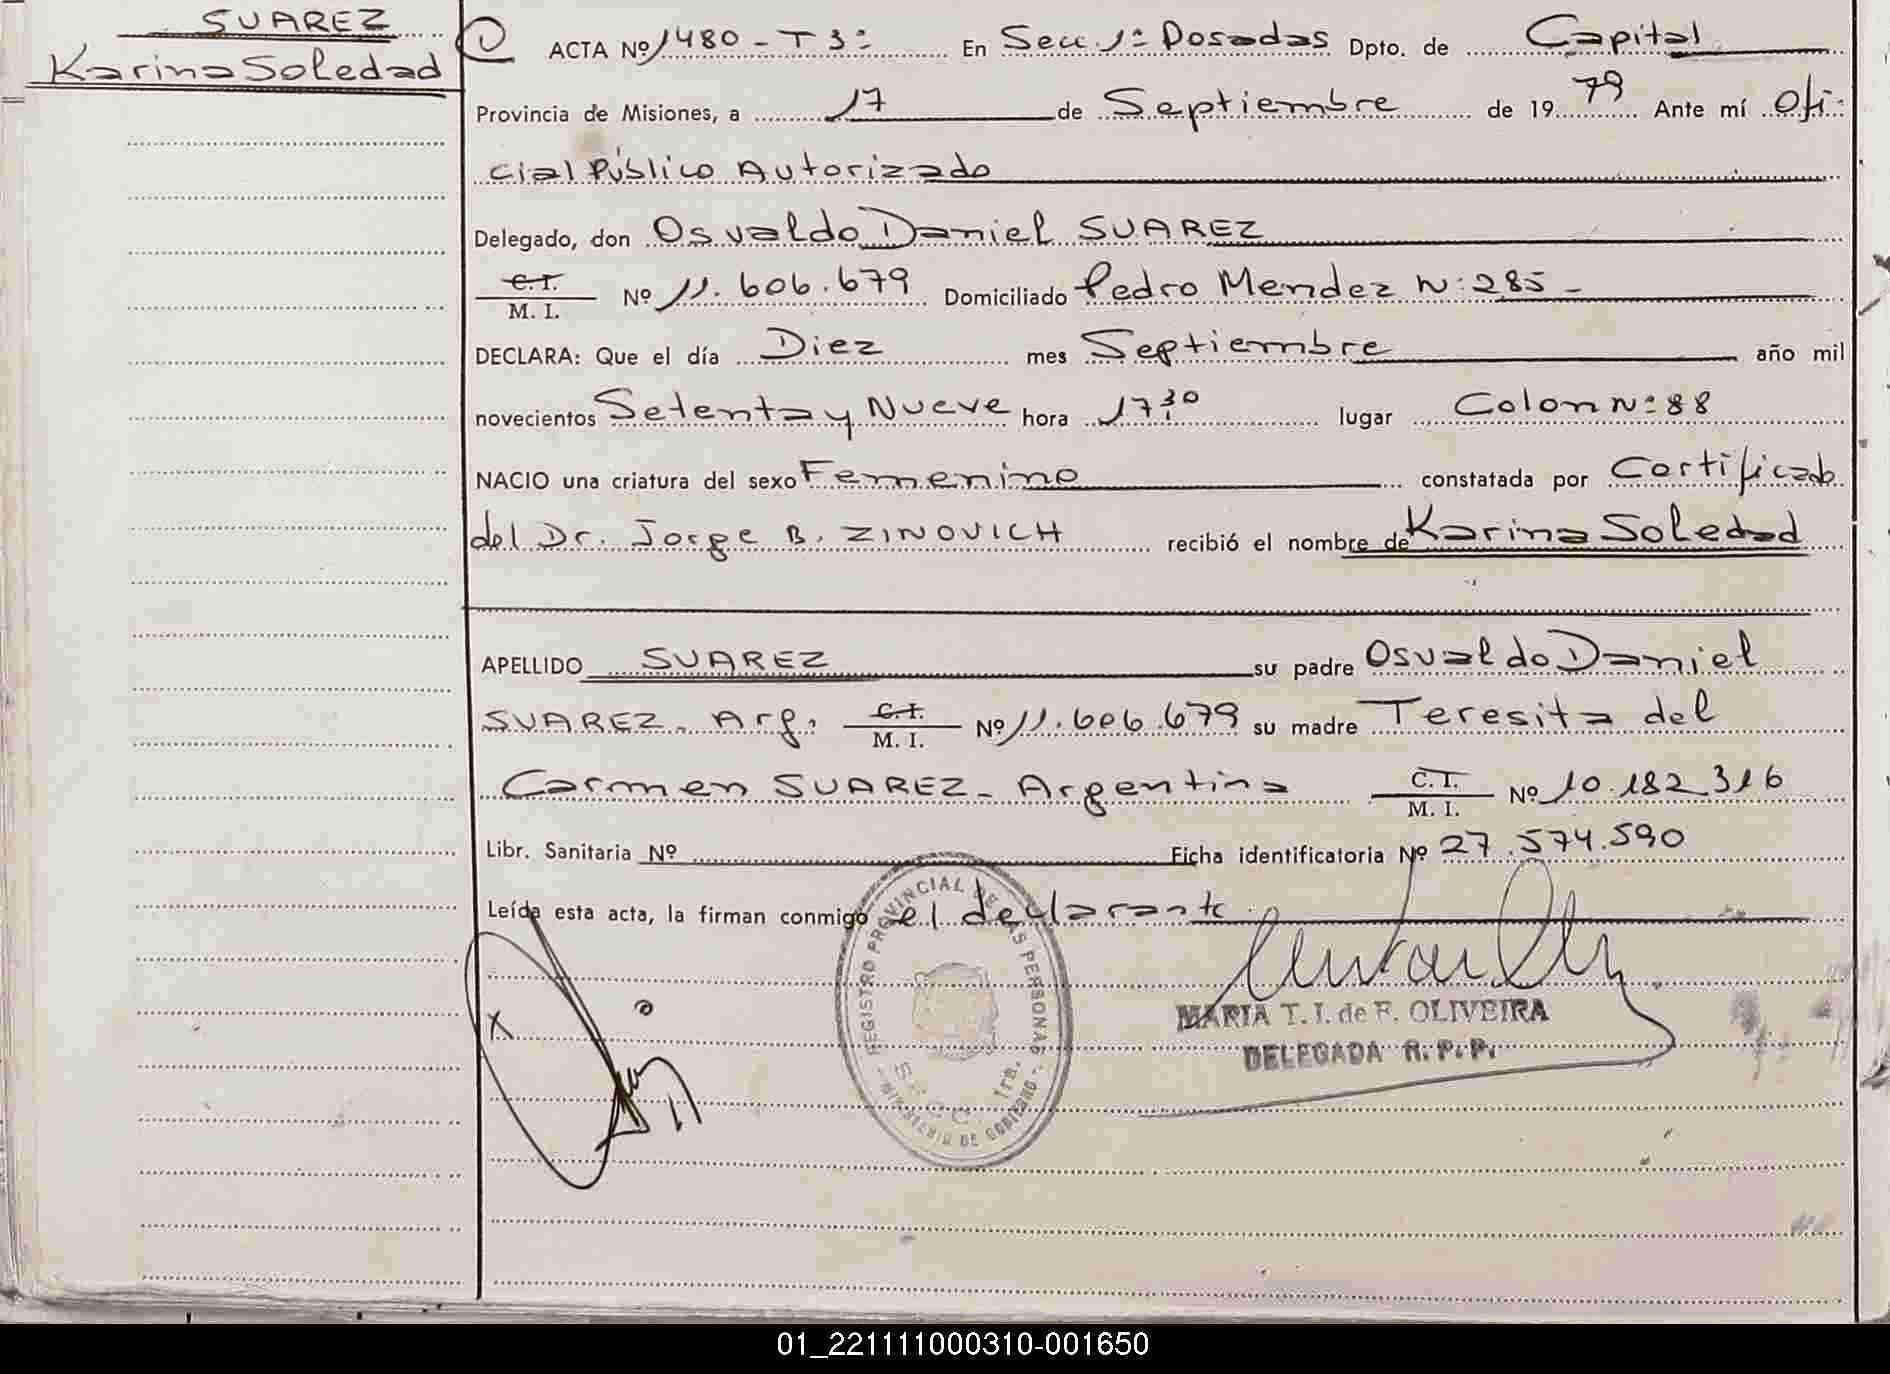 SUAREZ
Karina Soledad
1 ACTA Nº 1480 - T 3º En Secc. 1ª Posadas Dpto. de Capital
Provincia de Misiones, a 17 de Septiembre de 1979 Ante mí Ofi-
cial Público Autorizado
Delegado, don Osvaldo Daniel SUAREZ
C.I.
M. I. Nº 11.606.679 Domiciliado Pedro Mendez Nº 285 -
DECLARA: Que el día Diez mes Septiembre año mil
novecientos Setenta y Nueve hora 17:30 lugar Colon Nº 88
NACIO una criatura del sexo Femenino constatada por Certificado
del Dr. Jorge B. ZINOVICH recibió el nombre de Karina Soledad
APELLIDO SUAREZ su padre Osvaldo Daniel
SUAREZ - Arg. C.I. M. I. Nº 11.606.679 su madre Teresita del
Carmen SUAREZ - Argentina C.I. M. I. Nº 10.182.316
Libr. Sanitaria Nº Ficha identificatoria Nº 27.574.590
Leída esta acta, la firman conmigo el declarante.
REGISTRO PROVINCIAL DE LAS PERSONAS
SECC. 1ra.
- MINISTERIO DE GOBIERNO -
X
MARIA T. I. de F. OLIVEIRA
DELEGADA R. P. P.
01_221111000310-001650